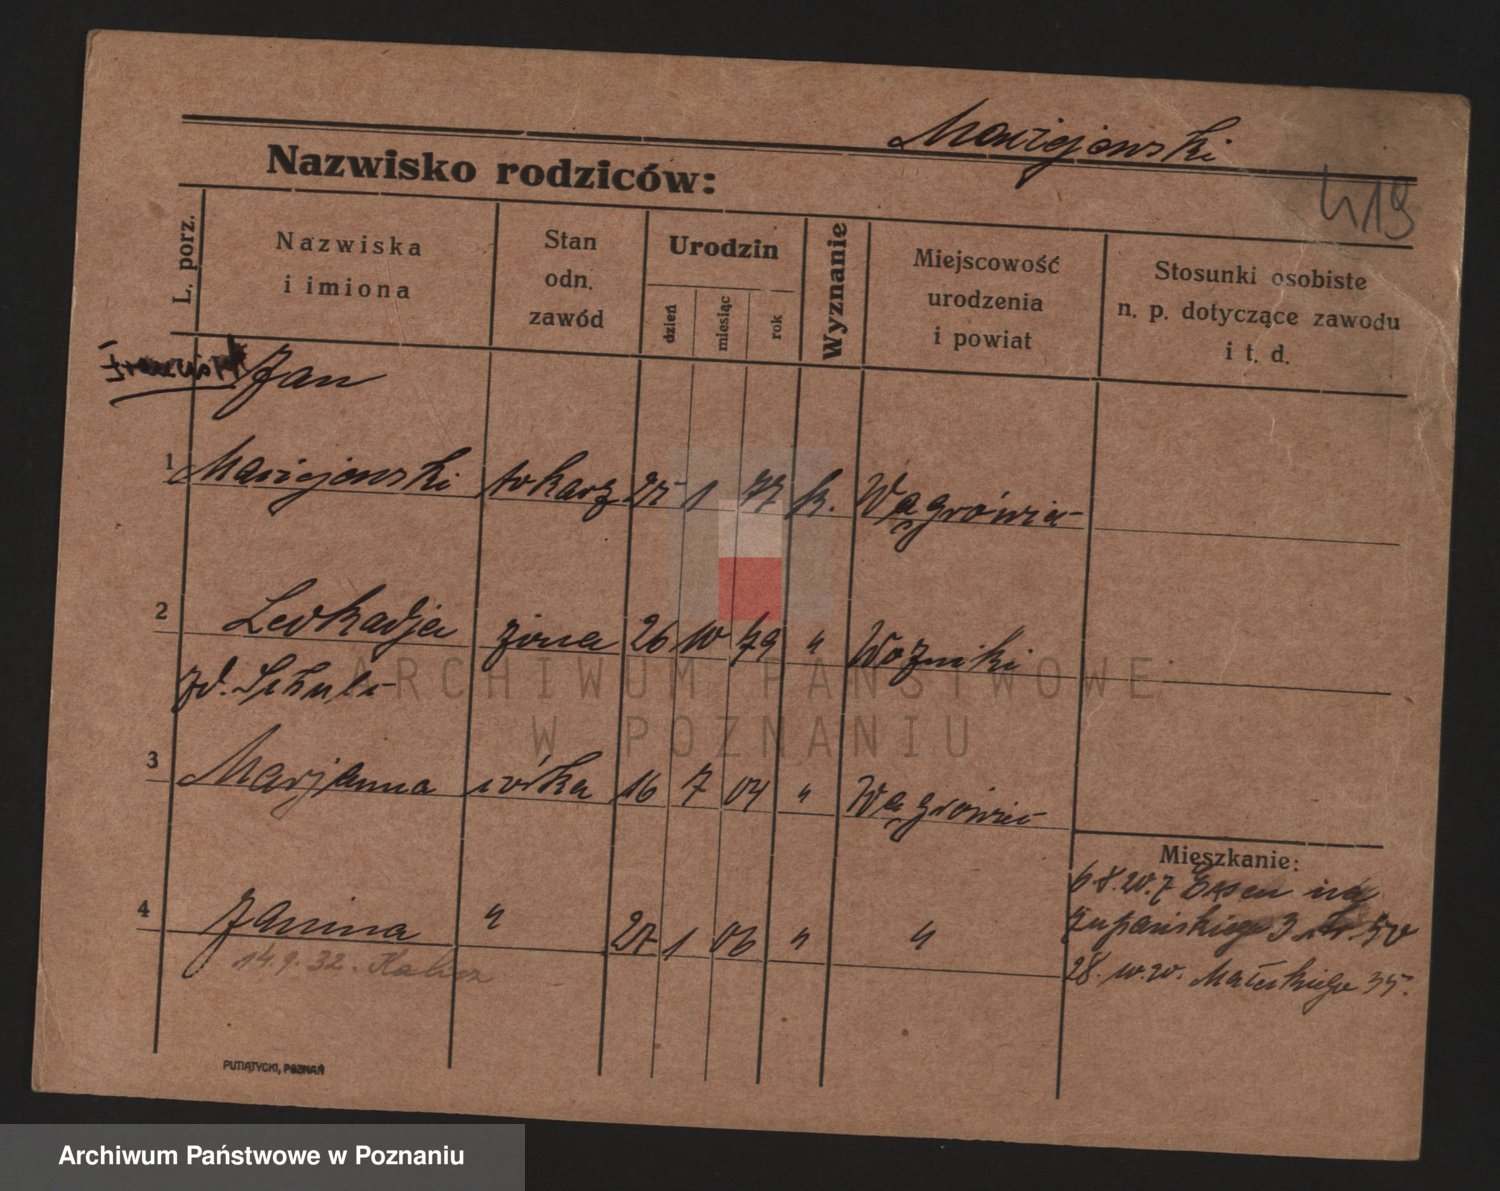 Maciejowski
Nazwisko rodziców:
419
L. porz.
Nazwiska
i imiona
Stan
odn.
zawód
Urodzin
dzień
miesiąc
rok
Wyznanie
Miejscowość
urodzenia
i powiat
Stosunki osobiste
n. p. dotyczące zawodu
i t. d.
Franciszek
Jan
1 Maciejowski tokarz 1 77 k. Wągrówiec
2 Leokadja żona 26 10 79 " Wozniki
zd.
3 Marjanna córka 16 7 04 " Wągrówiec
Mieszkanie:
6.8.20. Essen
4 Janina " 27 1 06 " "
Zupańskiego 3
14.9.32. Kalisz
28. 10. 20. Małeckiego 35.
PUTIATYCKI, POZNAŃ
ARCHIWUM PAŃSTWOWE
W POZNANIU
Archiwum Państwowe w Poznaniu